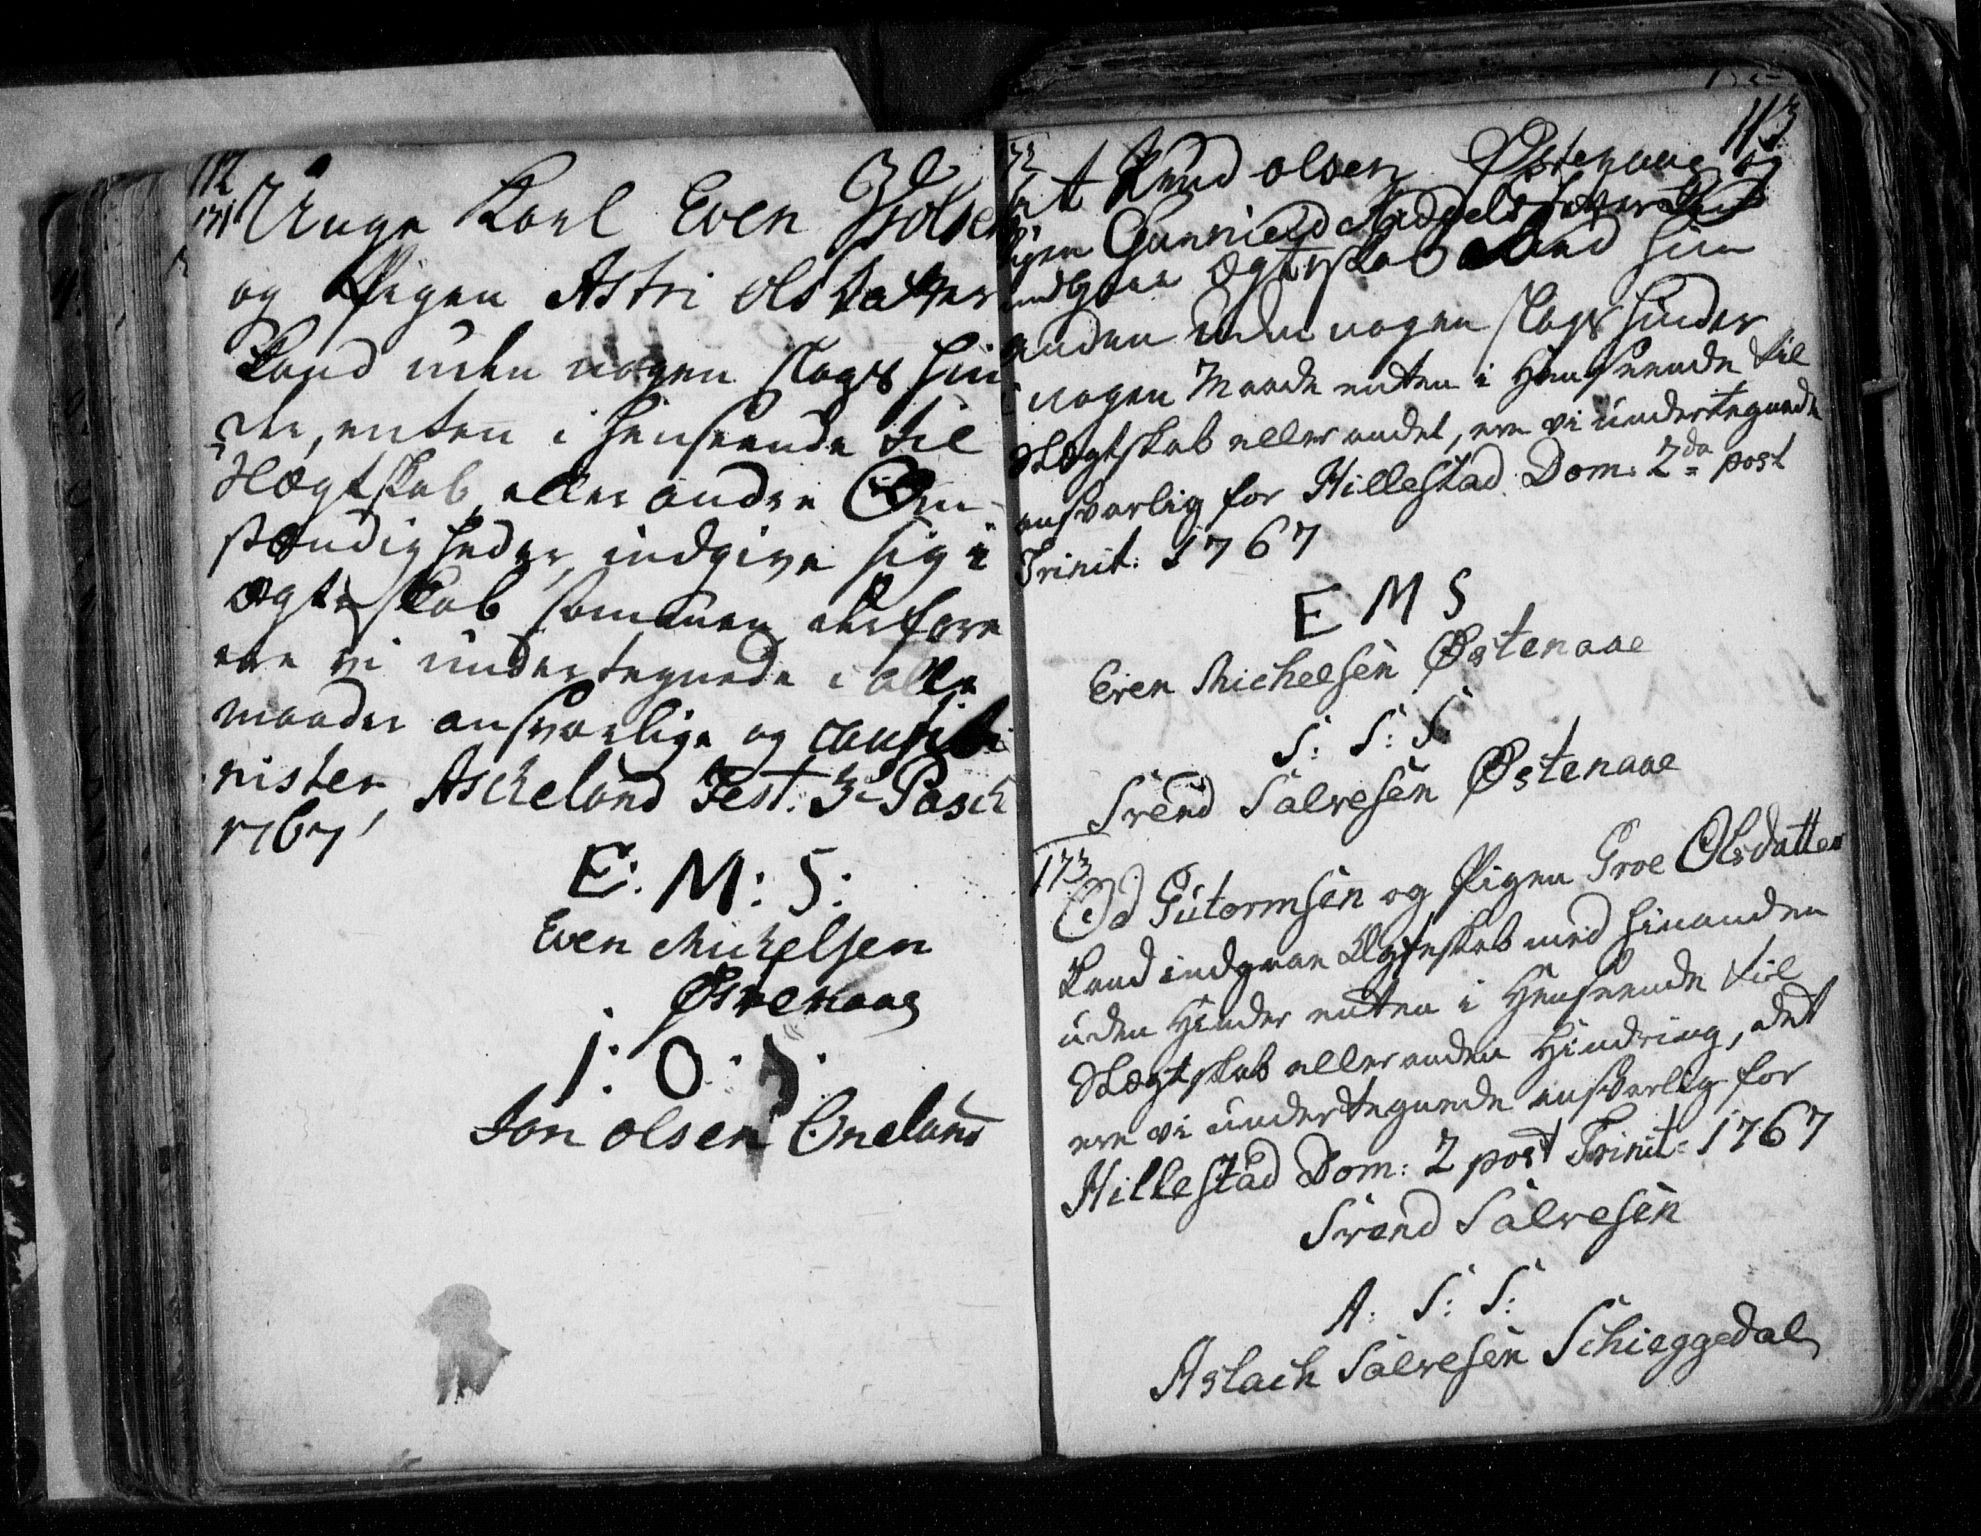 112
171
Unge Karl Even Tiølsen
og Pigen Astri Olsdatter
kand uden nogen slags hin
der, enten i henseende til
Slægtskab eller andre Om-
stændigheder, indgive sig i
ægteskab sammen derfore
ere vi undertegnede i alle
maader ansvarlige og
Ascheland Fest: 3. Pasch
1767
E: M: S:
Even Michelsen
Østenaae
J: O: S:
Jon Olsen Oneland
113
172
At Knud Olsen Østenaae og
Pigen Gunnield
indgaae Ægteskab med hin
anden uden nogen slags hinder
i nogen Maade enten i Henseende til
Slægtskab eller andet, ere vi undertegnede
ansvarlig for Hillestad Dom: 2da post
Trinit: 1767
E M S
Even Michelsen Østenaae
S: S: S:
Svend Salvesen Østenaae
173
Od Gutormsen og Pigen Groe Olsdatter
kand indgaae Ægteskab med hinanden
uden Hinder enten i Henseende til
Slægtskab eller anden Hindring, det
ere vi undertegnede ansvarlig for
Hillestad Dom: 2 post Trinit: 1767
Svend Salvesen
A: S: S:
Aslach Salvesen Schieggedal